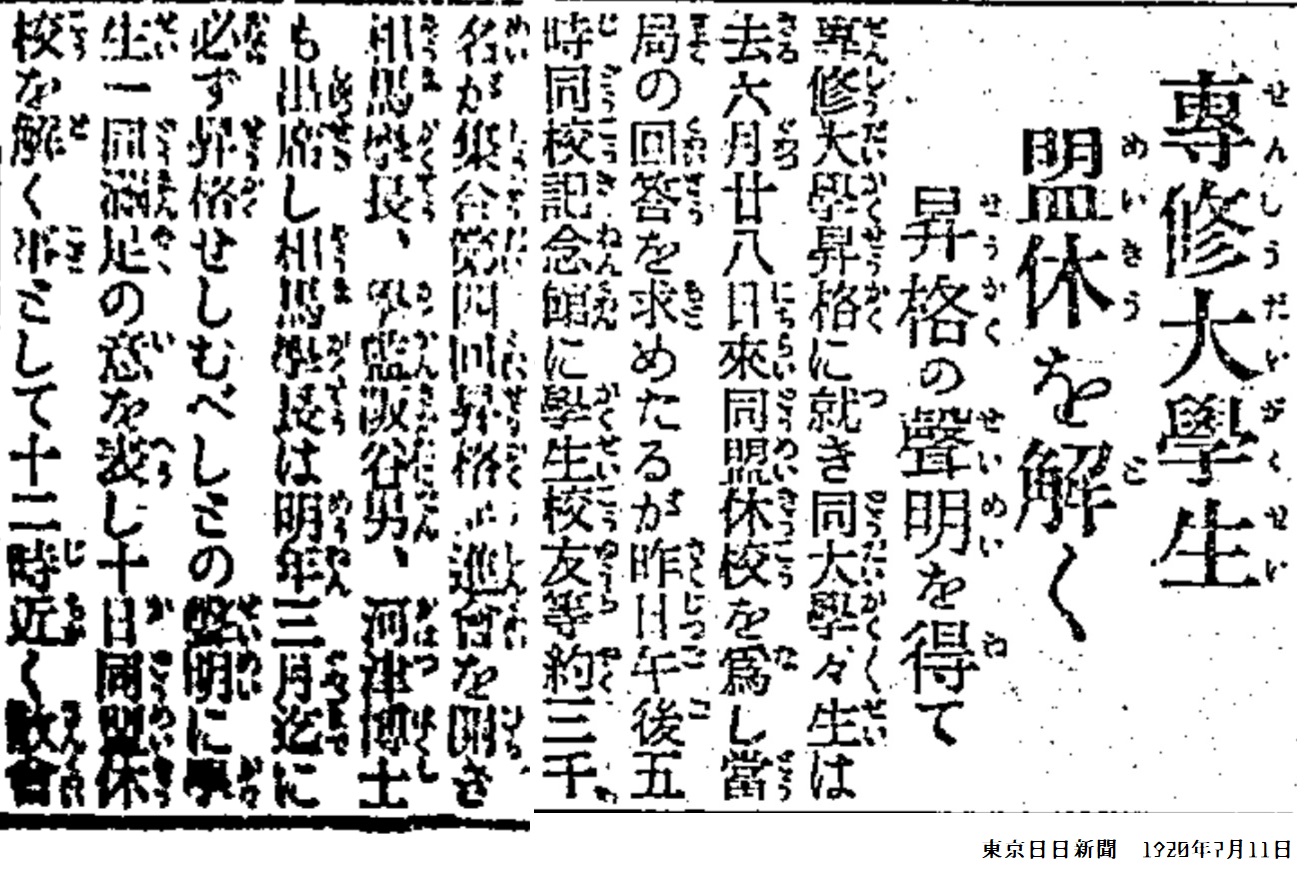 專修大學生
盟休を解く
昇格の聲明を得て
專修大學昇格に就き同大學々生は
去六月廿八日來同盟休校を爲し當
局の回答を求めたるが昨日午後五
時同校記念館に學生校友等約三千
名が集合第四回昇格 進會を開き
相馬學長、學監阪谷男、河津博士
も出席し相馬學長は明年三月迄に
必ず昇格せしむべしとの聲明に學
生一同滿足の意を表し十日同盟休
校を解く事として十二時近く散會
東京日日新聞 1920年7月11日